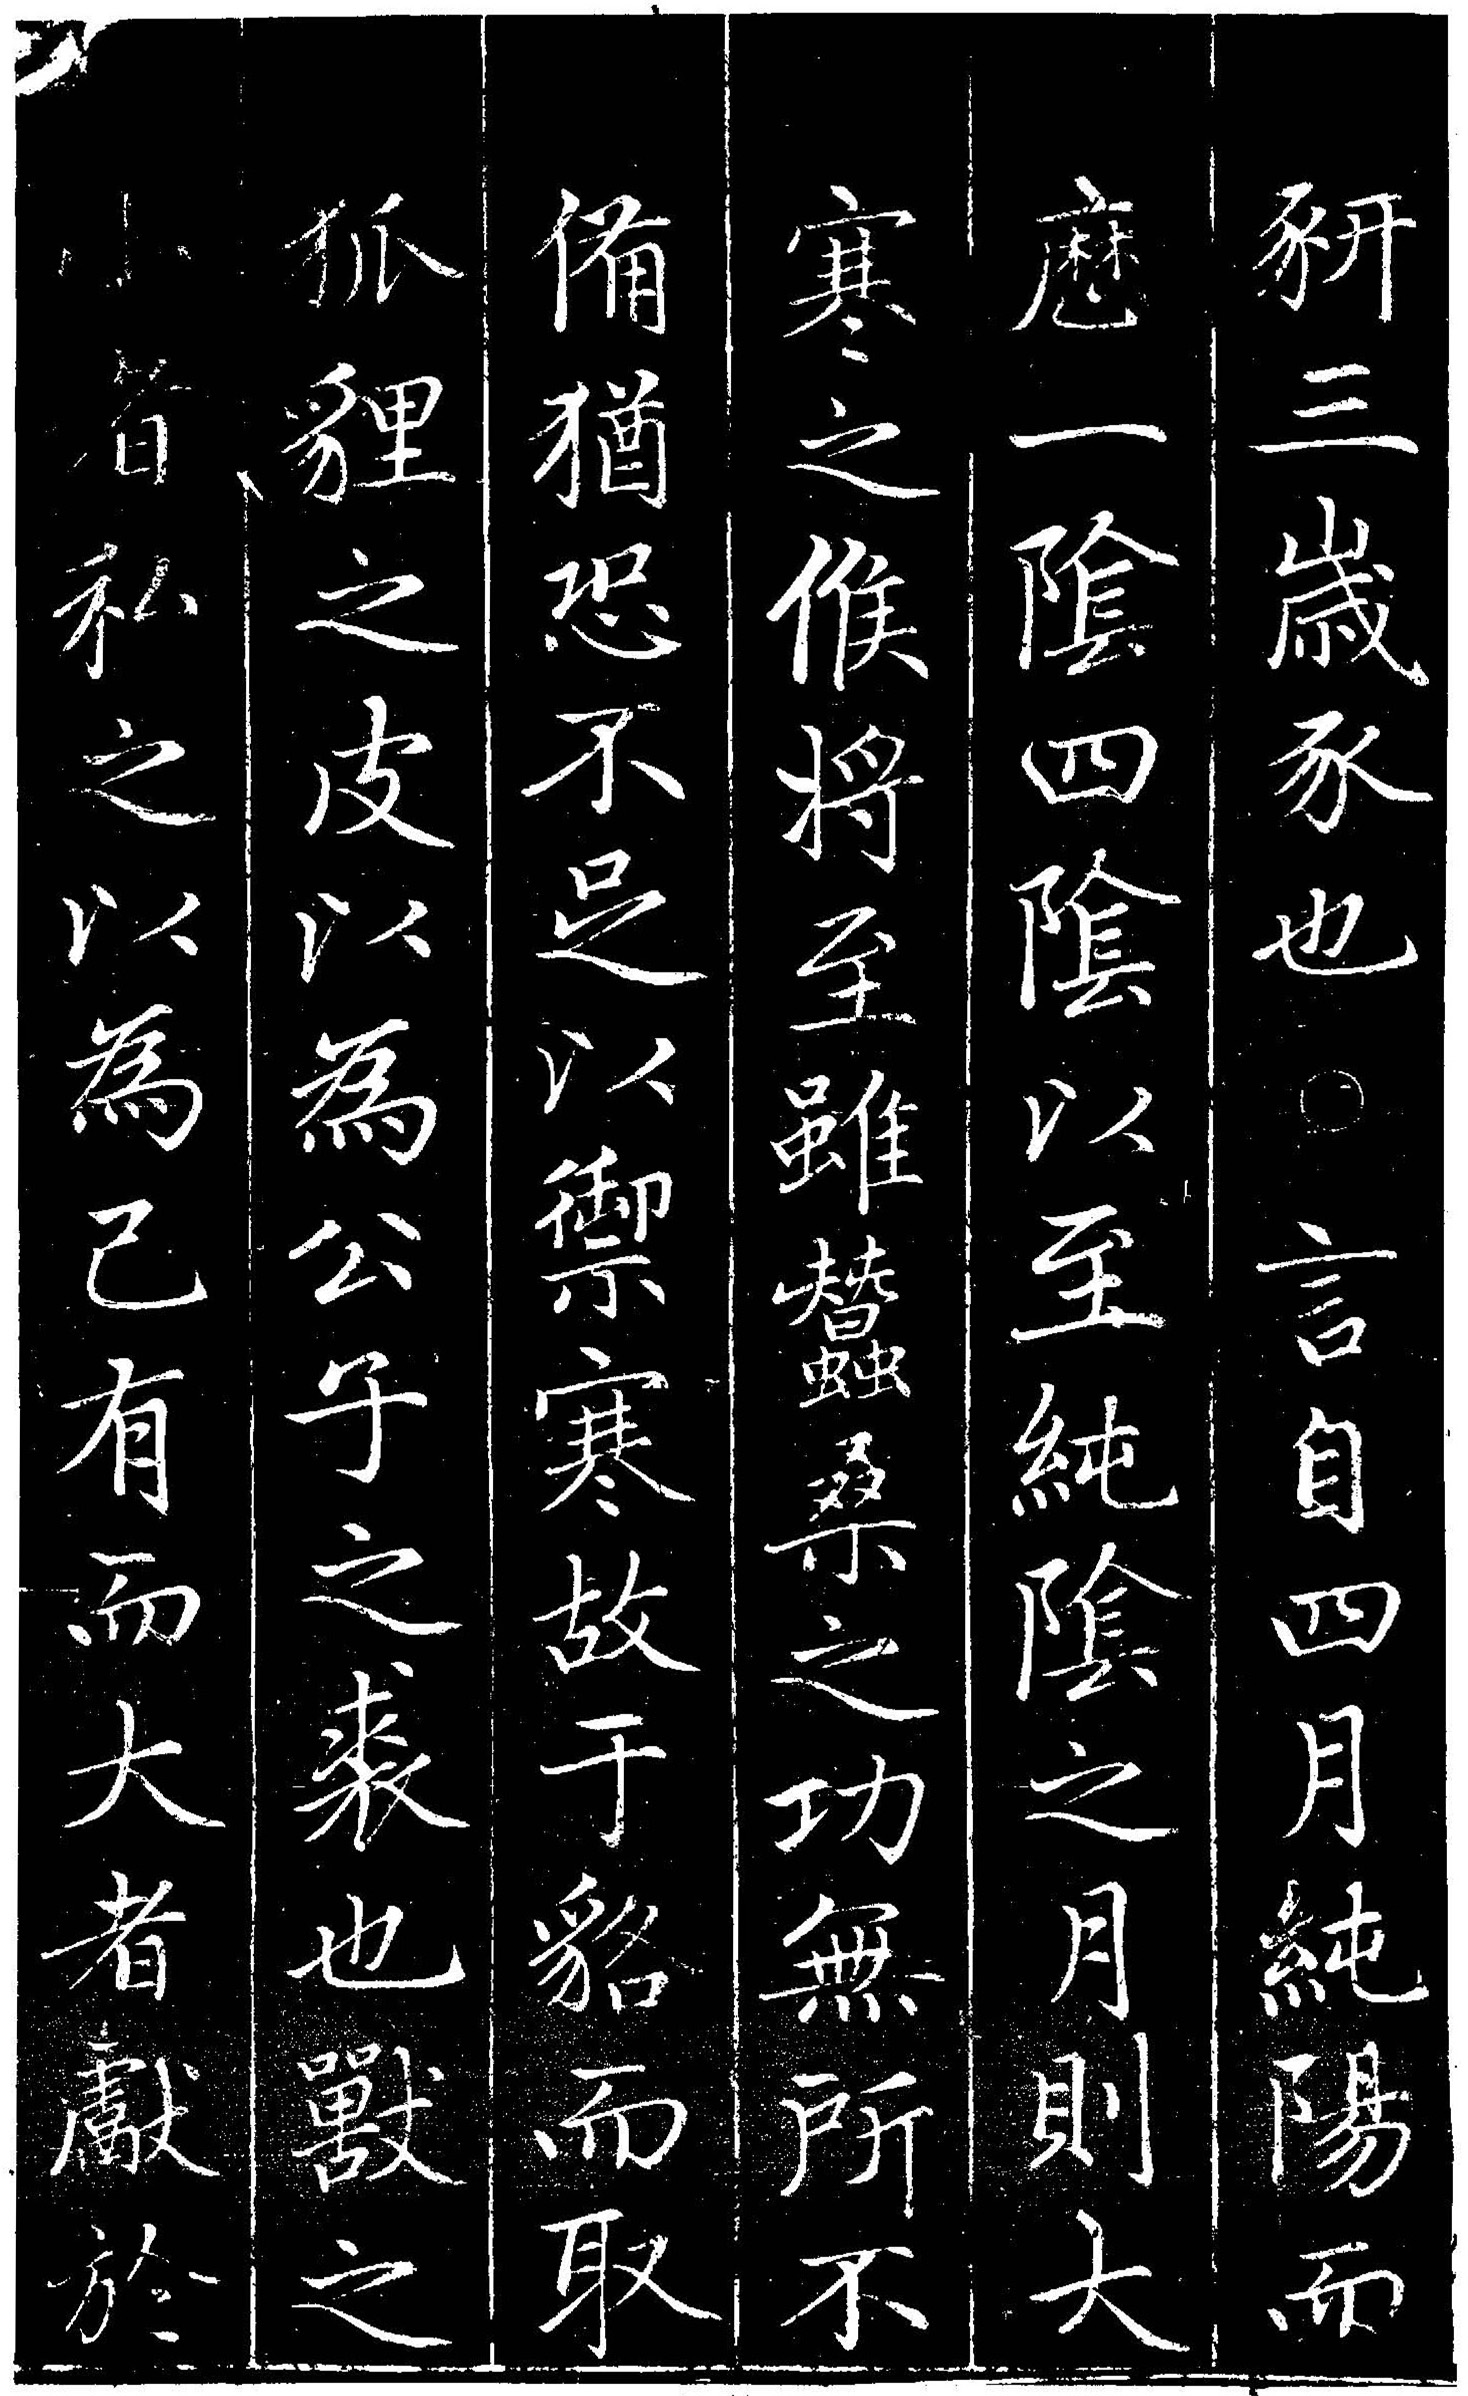 豜三歲豕也○言自四月純陽而
歷一陰四陰以至純陰之月則大
寒之候將至雖蠶桑之功無所不
備猶恐不足以禦寒故于貉而取
狐貍之皮以為公子之裘也獸之
小者私之以為己有而大者獻於